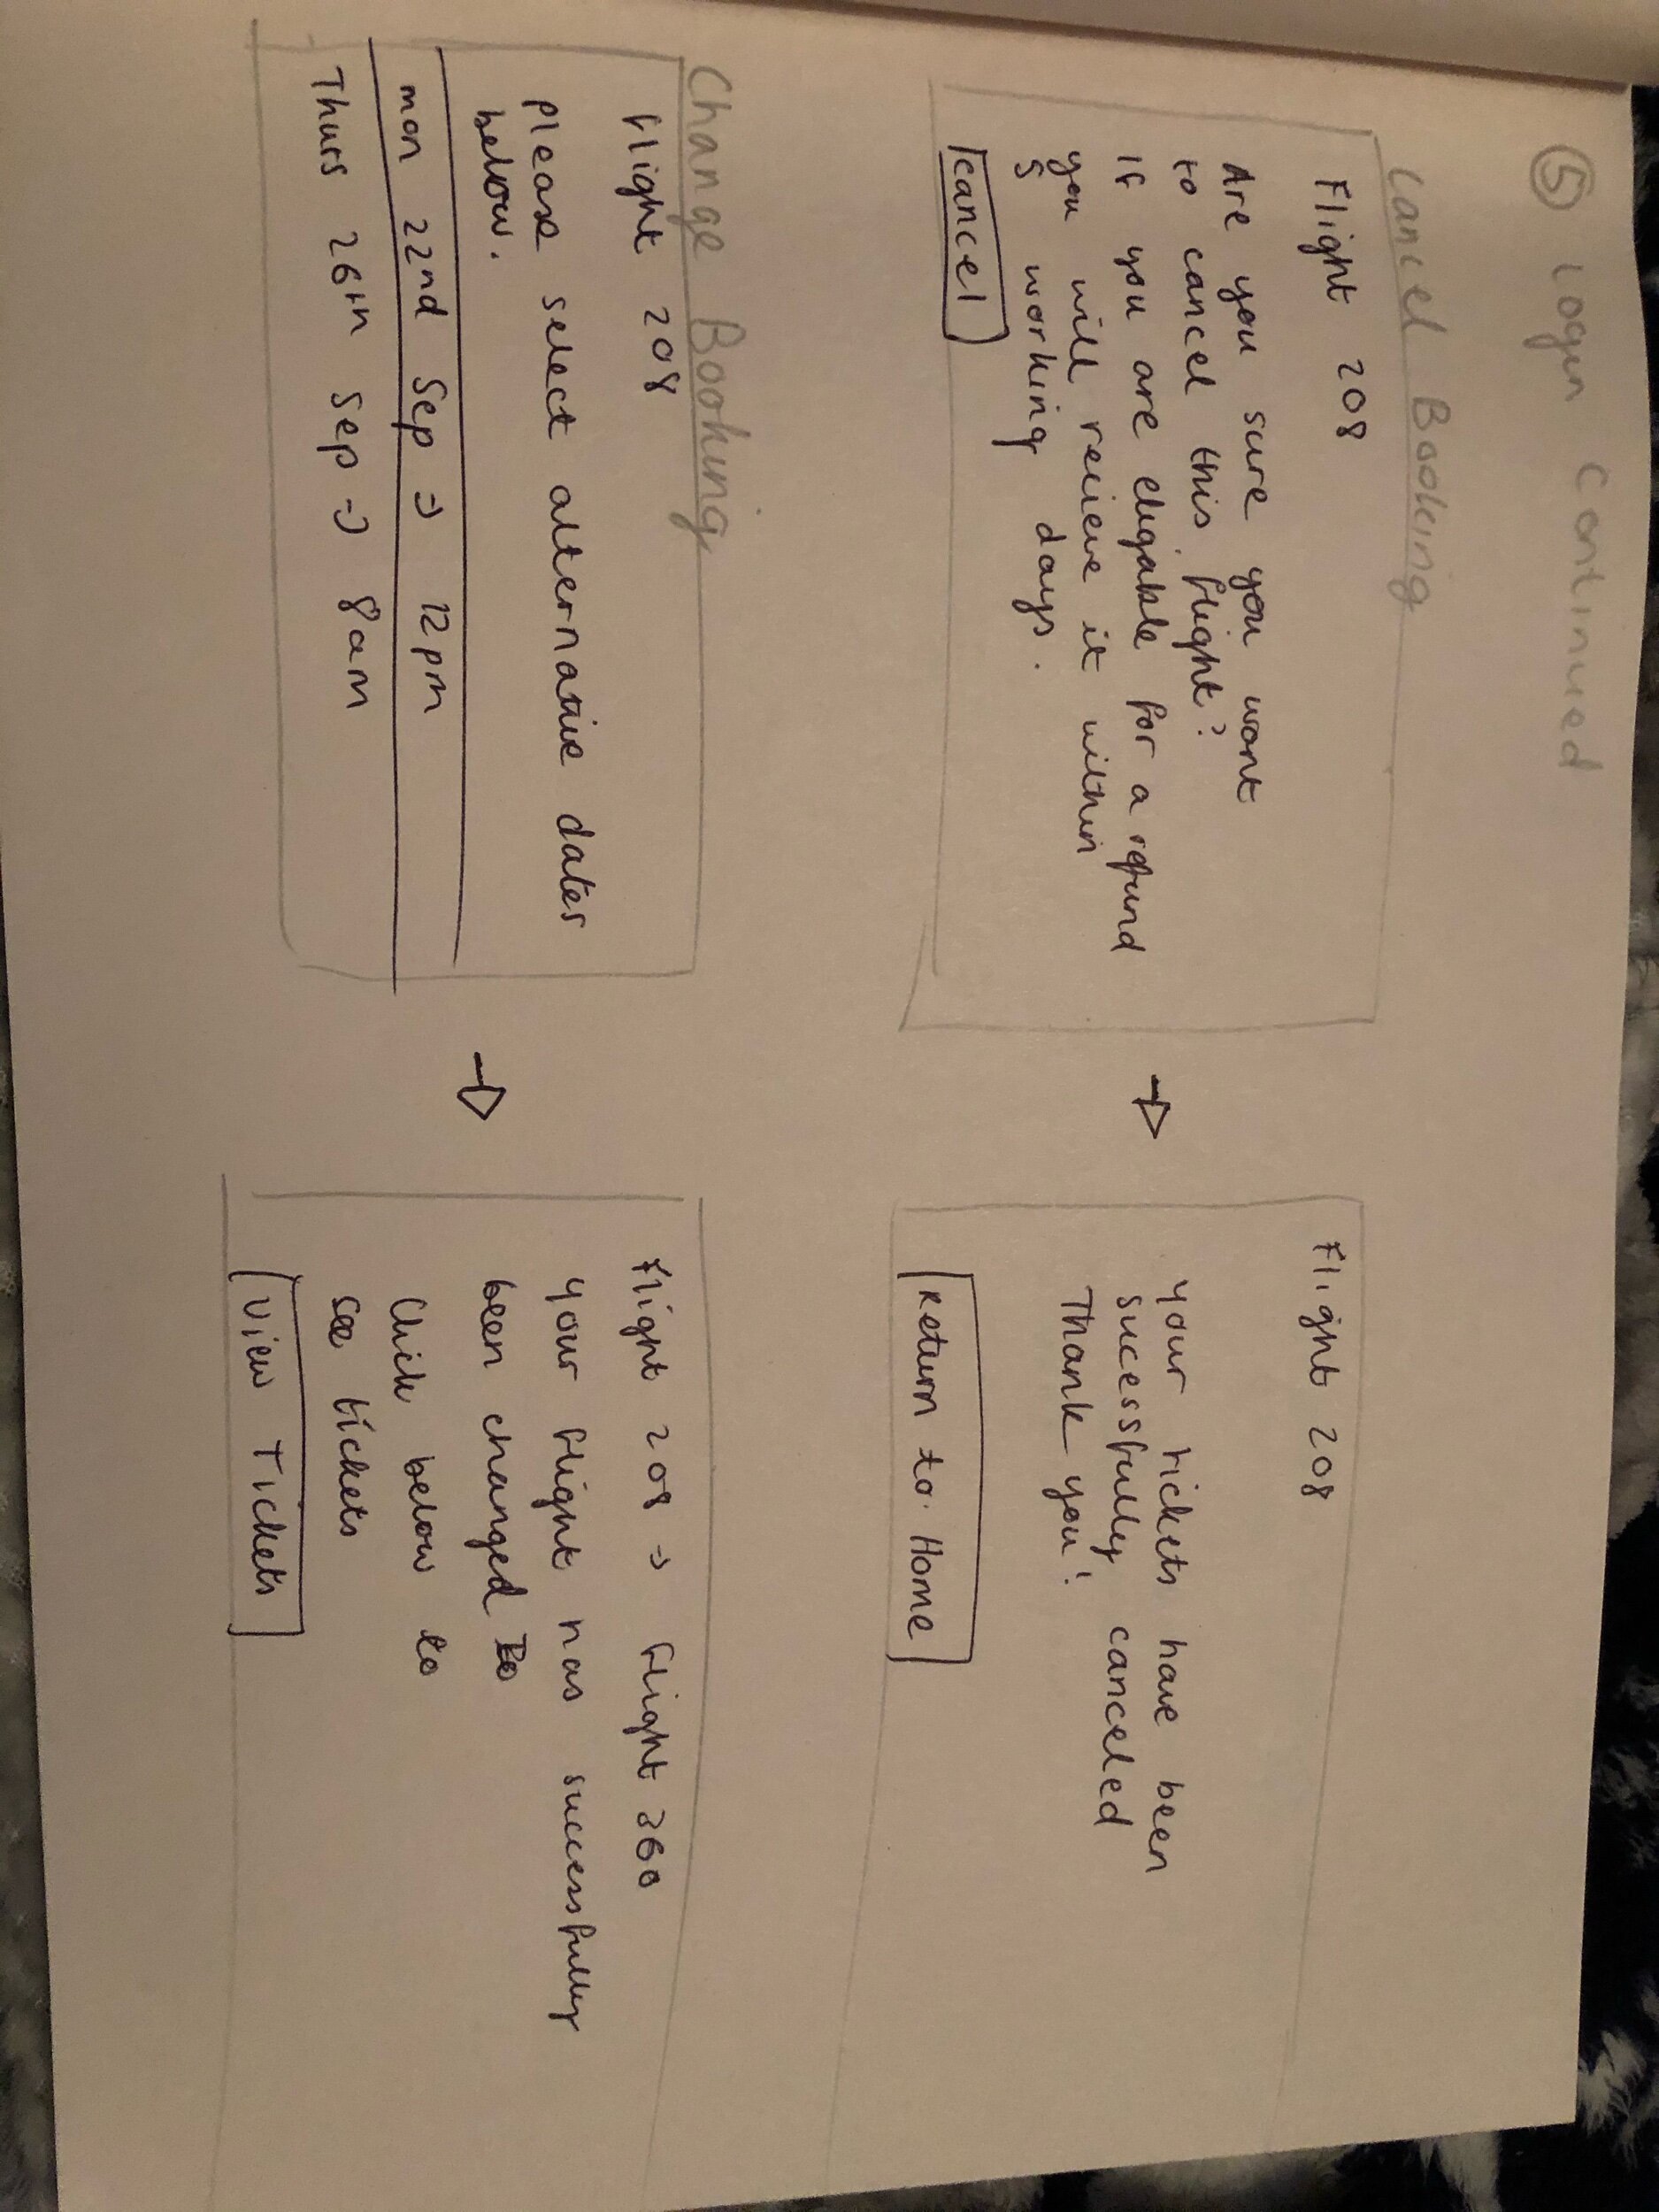 ⑤ Login continued
Cancel Booking
Flight 208
Are you sure you want
to cancel this flight?
If you are eligable for a refund
you will recieve it within
5 working days.
cancel
Flight 208
Your tickets have been
sucessfully canceled
Thank you!
Return to Home
Change Booking
Flight 208
Please select alternative dates
below.
mon 22nd Sep → 12pm
Thurs 26th Sep → 8am
Flight 208 → Flight 260
Your flight has successfully
been changed
Click below to
see tickets
View Tickets